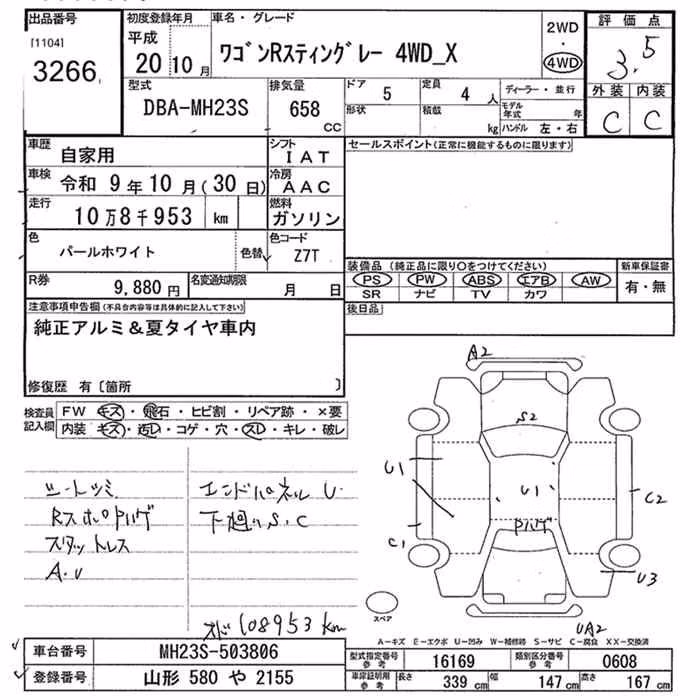 出品番号 初度登録年月 車名・グレード 2WD 評価点
[1104] 平成 ・ 3.5
3266 20 10月 ワゴンRスティングレー 4WD_X 4WD
型式 排気量 ドア 5 定員 4人 ディーラー・並行 外装 内装
DBA-MH23S 658 cc 形状 積載 kg モデル年式 年 C C
ハンドル 左・右
車歴 自家用 シフト IAT セールスポイント(正常に機能するものに限ります)
車検 令和 9年10月(30日) 冷房 AAC
走行 10万8千953 km 燃料 ガソリン
色 パールホワイト 色替 色コード Z7T
装備品 (純正品に限り○をつけてください) 新車保証書
R券 9,880円 名変通知期限 月 日 PS PW ABS エアB AW 有・無
SR ナビ TV カワ
注意事項申告欄(不具合内容等は具体的に記入して下さい) 後日品
純正アルミ&夏タイヤ車内
修復歴 有〔箇所 〕
検査員 FW キズ・飛石・ヒビ割・リペア跡・×要
記入欄 内装 キズ・汚レ・コゲ・穴・スレ・キレ・破レ
A2
S2
U1 U1 C2
Pハゲ
C1
U3
スペア UA2
シートシミ エンドパネルU.
RスポPハゲ 下廻りS.C
スタットレス
A.U
オド108953km
A-キズ E-エクボ U-凹み W-補修跡 S-サビ C-腐食 XX-交換済
車台番号 MH23S-503806 型式指定番号 参考 16169 類別区分番号 参考 0608
登録番号 山形 580 や 2155 車庫証明用 参考 長さ 339 cm 幅 147 cm 高さ 167 cm